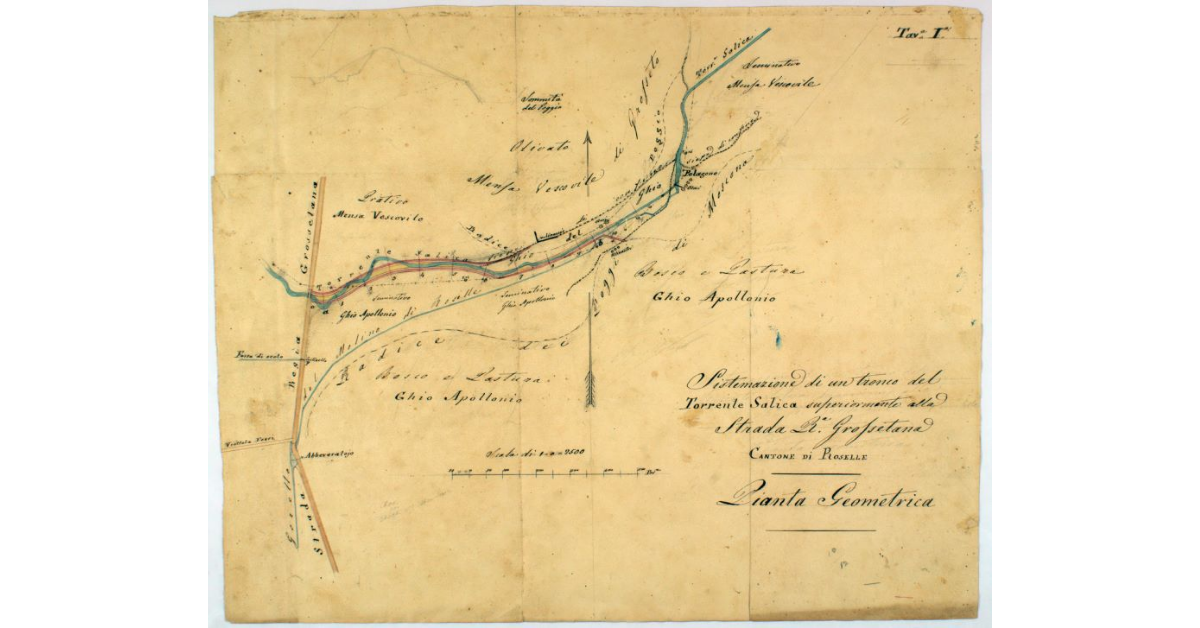 Tav.ª I.ª
Torr.e Salica
Seminativo
Mensa Vescovile
Sommità
del Poggio
Olivato
Mensa Vescovile
di Grosseto
Poggio
Ghio
del
Moscona
di
Poggio
Prativo
Mensa Vescovile
Radice
Torrente Salica
Seminativo
Ghio Apollonio
Seminativo
Ghio Apollonio
Molino di
Bosco e Pastura
Ghio Apollonio
Radice del
Bosco e Pastura
Ghio Apollonio
Strada Regia Grossetana
Abbeveratojo
Gorello
Scala di 1 a 2500
Sistemazione di un tronco del
Torrente Salica superiormente alla
Strada R.ª Grossetana
Cantone di Roselle
Pianta Geometrica